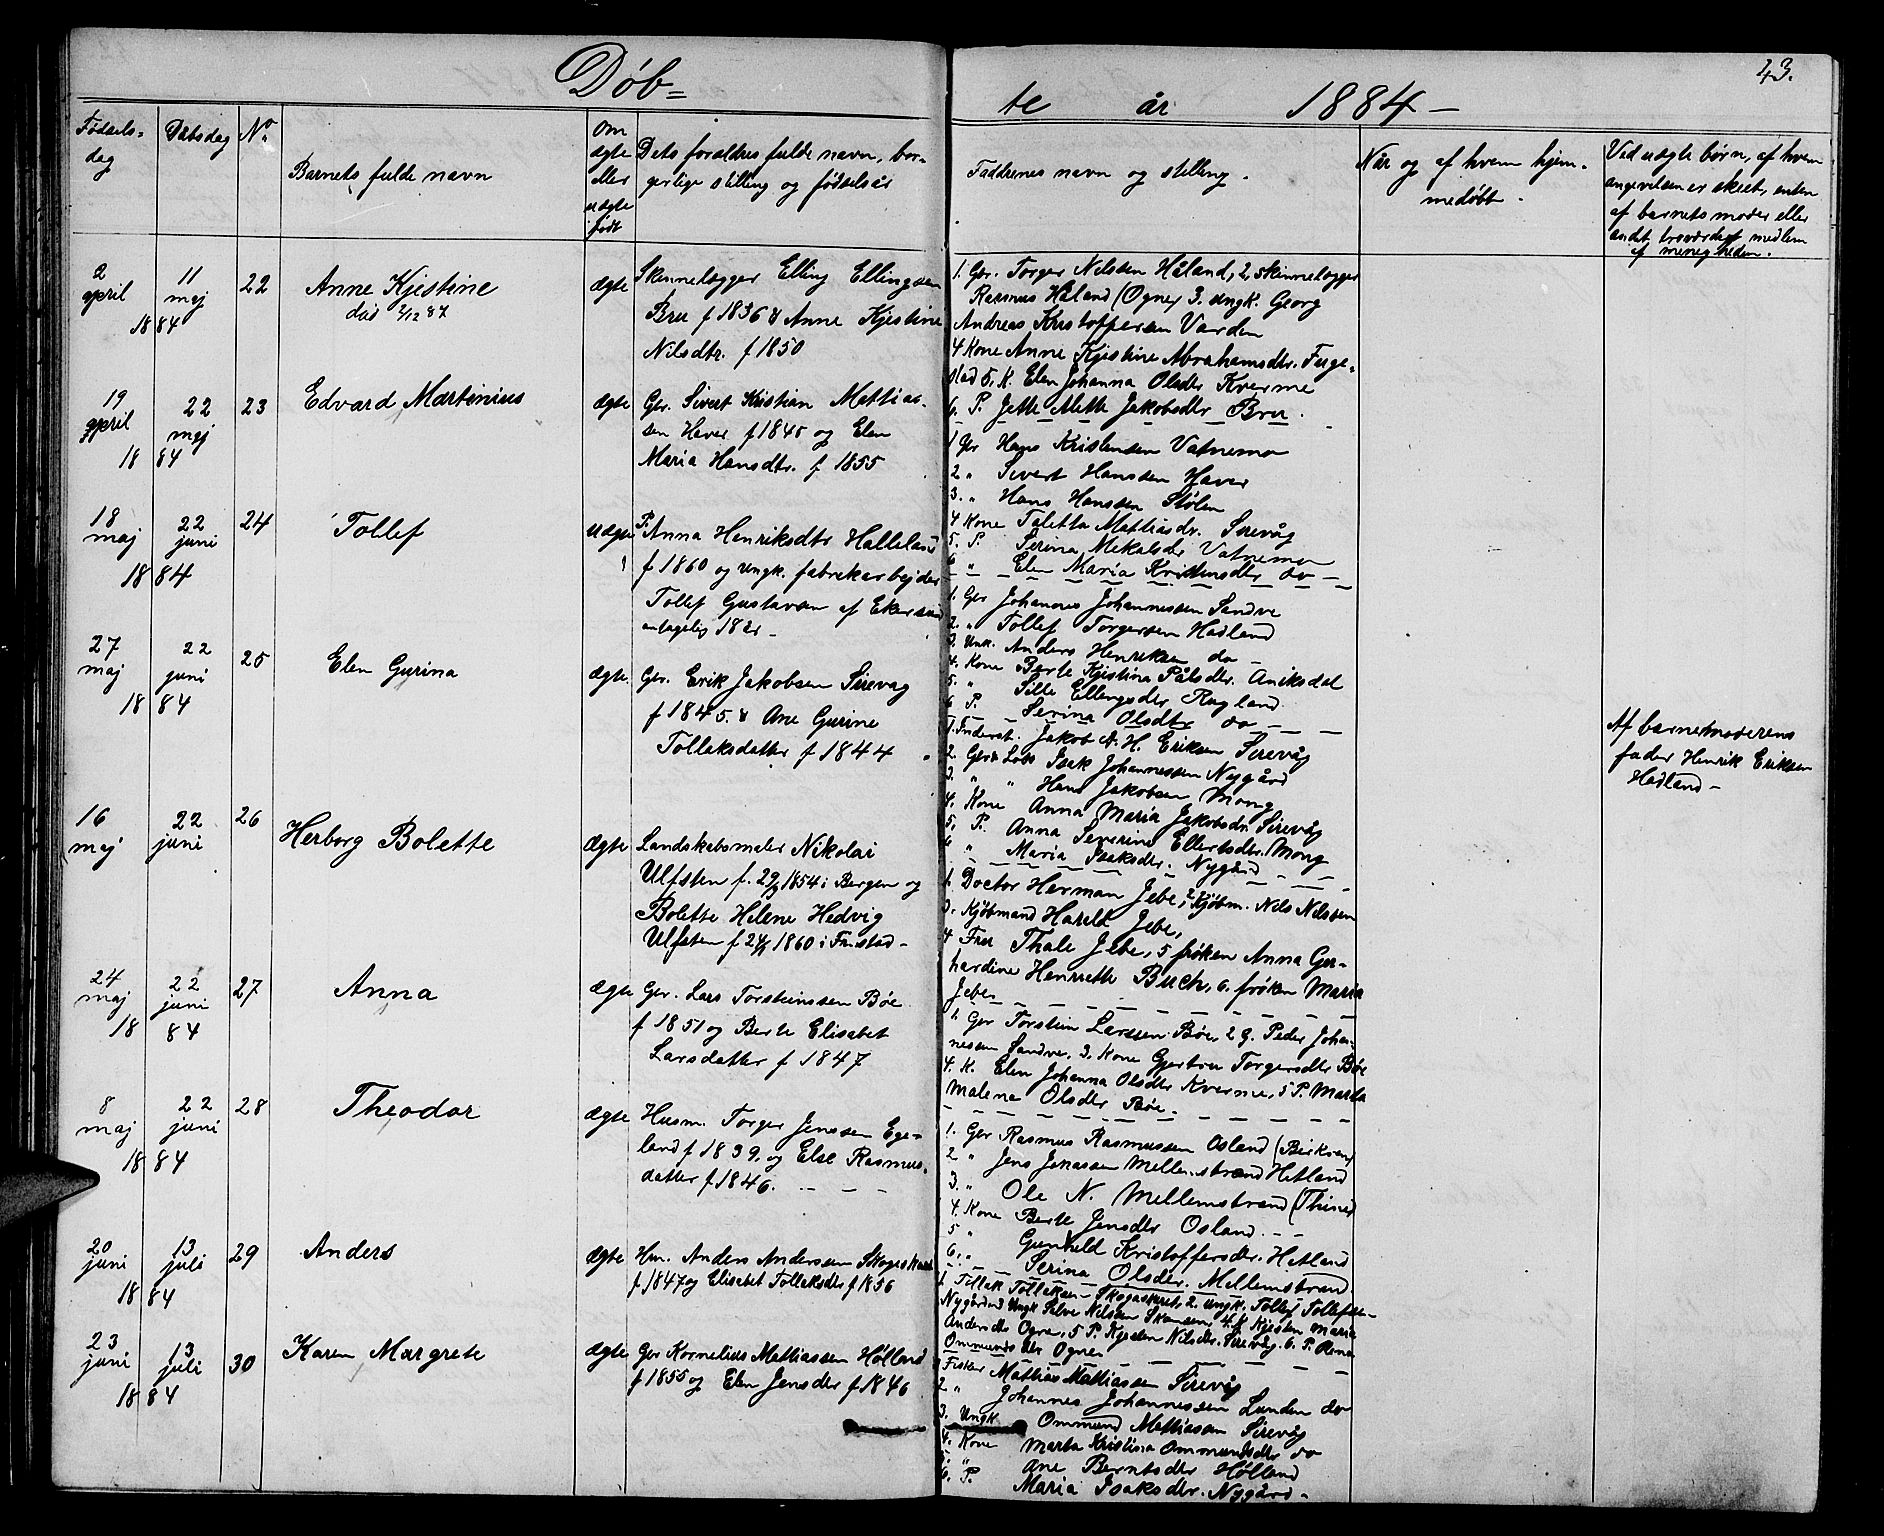 Døb=
te år 1884 –
43.
Fødsels=
dag
Dåbsdag
No
Barnets fulde navn
Om
ægte
eller
uægte
født
Dets foraldres fulde navn, bor-
gerlige stilling og fødselsår
Faddernes navn og stilling.
Når og af hvem hjem-
medøbt.
Ved uægte børn, af hvem
angivelsen er skeet, enten
af barnets moder eller
andet troværdigt medlem
af menigheden.
2 april 1884
11 maj
22
Anne Kjestine
død 2/12 87
ægte
Skinnelægger Elling Ellingsen
Bru f 1836 & Anne Kjestine
Nilsdtr. f 1850
1. Gr. Torger Nilssen Håland, 2. skinnelægger
Rasmus Håland (Ogne) 3. ungk. Georg
Andreas Kristoffersen Varden
4 Kone Anne Kjestine Abrahamsdtr. Fuge-
stad 5. K. Elen Johanna Olsdtr Kverme
6. P. Jette Mette Jakobsdtr Bru.
19 april 1884
22 maj
23
Edvard Martinius
ægte
Gr. Sivert Kristian Mattias-
sen Haver f 1845 og Elen
Maria Hansdtr. f 1855
1 Gr Hans Kristensen Vatnemo
2 " Sivert Hanssen Haver
3. " Hans Hanssen Stølen
4 Kone Taletta Mattiasdr. Sirevåg
5. P. Serina Mikalsdr Vatnemo
6 " Elen Maria Kristensdtr do –
18 maj 1884
22 juni
24
Tollef
uægte
P. Anna Henriksdtr Halleland
f 1860 og ungk. fabrikarbejder
Tollef Gustavsen af Ekersund
antagelig
1. Gr Johannes Johannessen Sandve
2. " Tollef Torgersen Hadland
3. Unk. Anders Henriksen do –
4. Kone Berte Kjestina Pålsdtr. Aniksdal
5. " Sille Ellingsdtr Rugland
6 P. Serina Olsdtr do –
Af barnemoderens
fader Henrik Eriksen
Hadland –
27 maj 1884
22 juni
25
Elen Gurina
ægte.
Gr. Erik Jakobsen Sirevag
f 1845. & Ane Gurine
Tollaksdatter f 1844
1. Inderst. Jakob A. H. Eriksen Sirevåg
2. Gr & Lods Isak Johannessen Nygård
3. " " Hans Jakobsen Mong
4. Kone Anna Maria Jakobsdr Sirevåg
5. P. Anna Severine Ellertsdtr. Mong
6 " Maria Isaksdtr. Nygård
16 maj
22 juni
26
Herborg Bolette
ægte
Landskabsmaler Nikolai
Ulfsten f. 29/9 1854 i Bergen og
Bolette Helene Hedvig
Ulfsten f 24/8 1860 i
1. Doctor Herman Jebe, 2. Kjøbm. Nils Nilssen
3. Kjøbmand Harald Jebe,
4 Fru Thale Jebe, 5 frøken Anna Ger-
hardine Henriette Buch, 6. frøken Maria
Jebe.
24 maj 1884
22 juni
27
Anna
ægte
Gr. Lars Torsteinssen Bøe
f 1851 og Berte Elisabet
Larsdatter f 1847
1. Gr Torstein Larssen Bøe, 2 G. Peder Johan-
nessen Sandve, 3. Kone Gjertru Torgersdtr Bøe
4. K. Elen Johanna Olsdtr Kverme, 5 P. Marta
Malena Olsdtr Bøe.
8 maj 1884
22 juni
28
Theodor
ægte
Husm. Torger Jenssen Ege-
land f 1839, og Else Rasmus-
datter f 1846.
1. Gr Rasmus Rasmussen Osland (Birkrem)
2 " Jens Jonassen Mellemstrand Hetland
3. " Ole N. Mellemstrand
4. Kone Berte Jensdtr Osland.
5 " Gunhild Kristoffersdr. Hetland
6. " Serina Olsdtr. Mellemstrand
20 juni 1884
13 juli
29
Anders
ægte
Hm. Anders Anderssen
f 1847 og Elisabet Tollaksdtr f 1856
1. Tollak Tollaksen – Skogaskaret, 2. ungk. Tollef Tollefsen
Nygård Ungk Salve Nilssen 4. K Kjesten Maria
Andersdtr Ogne, 5 P. Kjesten Nilsdtr, Sirevåg. 6. P. Rena
Ommundsdtr Ogne
23 juni 1884
13 juli
30
Karen Margrete
ægte
Gr Kornelius Mattiassen Hølland
f 1855 og Elen Jensdtr f 1846
Fisker Mathias Mattiassen Sirevåg
2 " Johannes Johannessen Lunden do
3. Ungk Ommund Mattiassen Sirevåg
4. Kone Marta Kristina Ommundsdtr do
5. " Ane Berntsdtr Hølland
6. P. Maria Isaksdtr. Nygård –